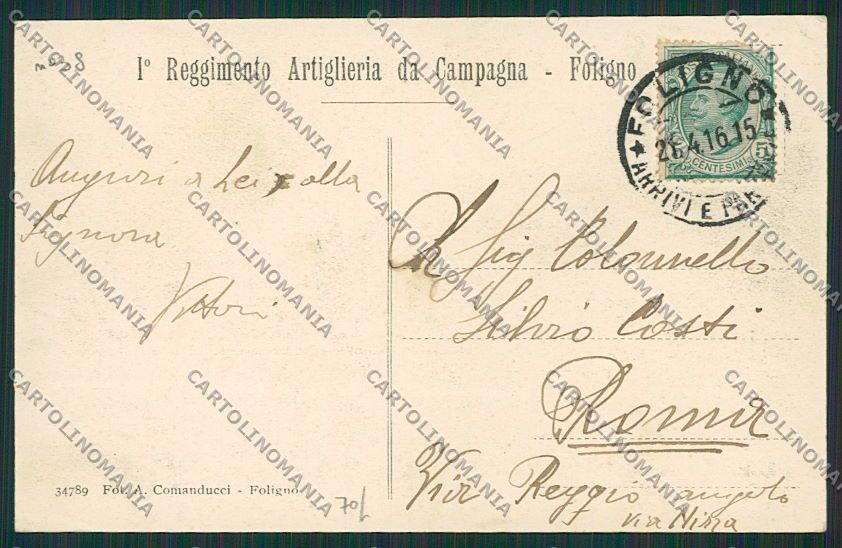 Iº Reggimento Artiglieria da Campagna - Foligno
FOLIGNO
26.4.16.15
ARRIVI E PARTENZE
CENTESIMI 5
Auguri a Lei e alla
Signora
Vittori
Al Sig Colonnello
Silvio Costi
Roma
Via Reggio angolo
via Nizza
34789 Fot. A. Comanducci - Foligno
70/
CARTOLINOMANIA